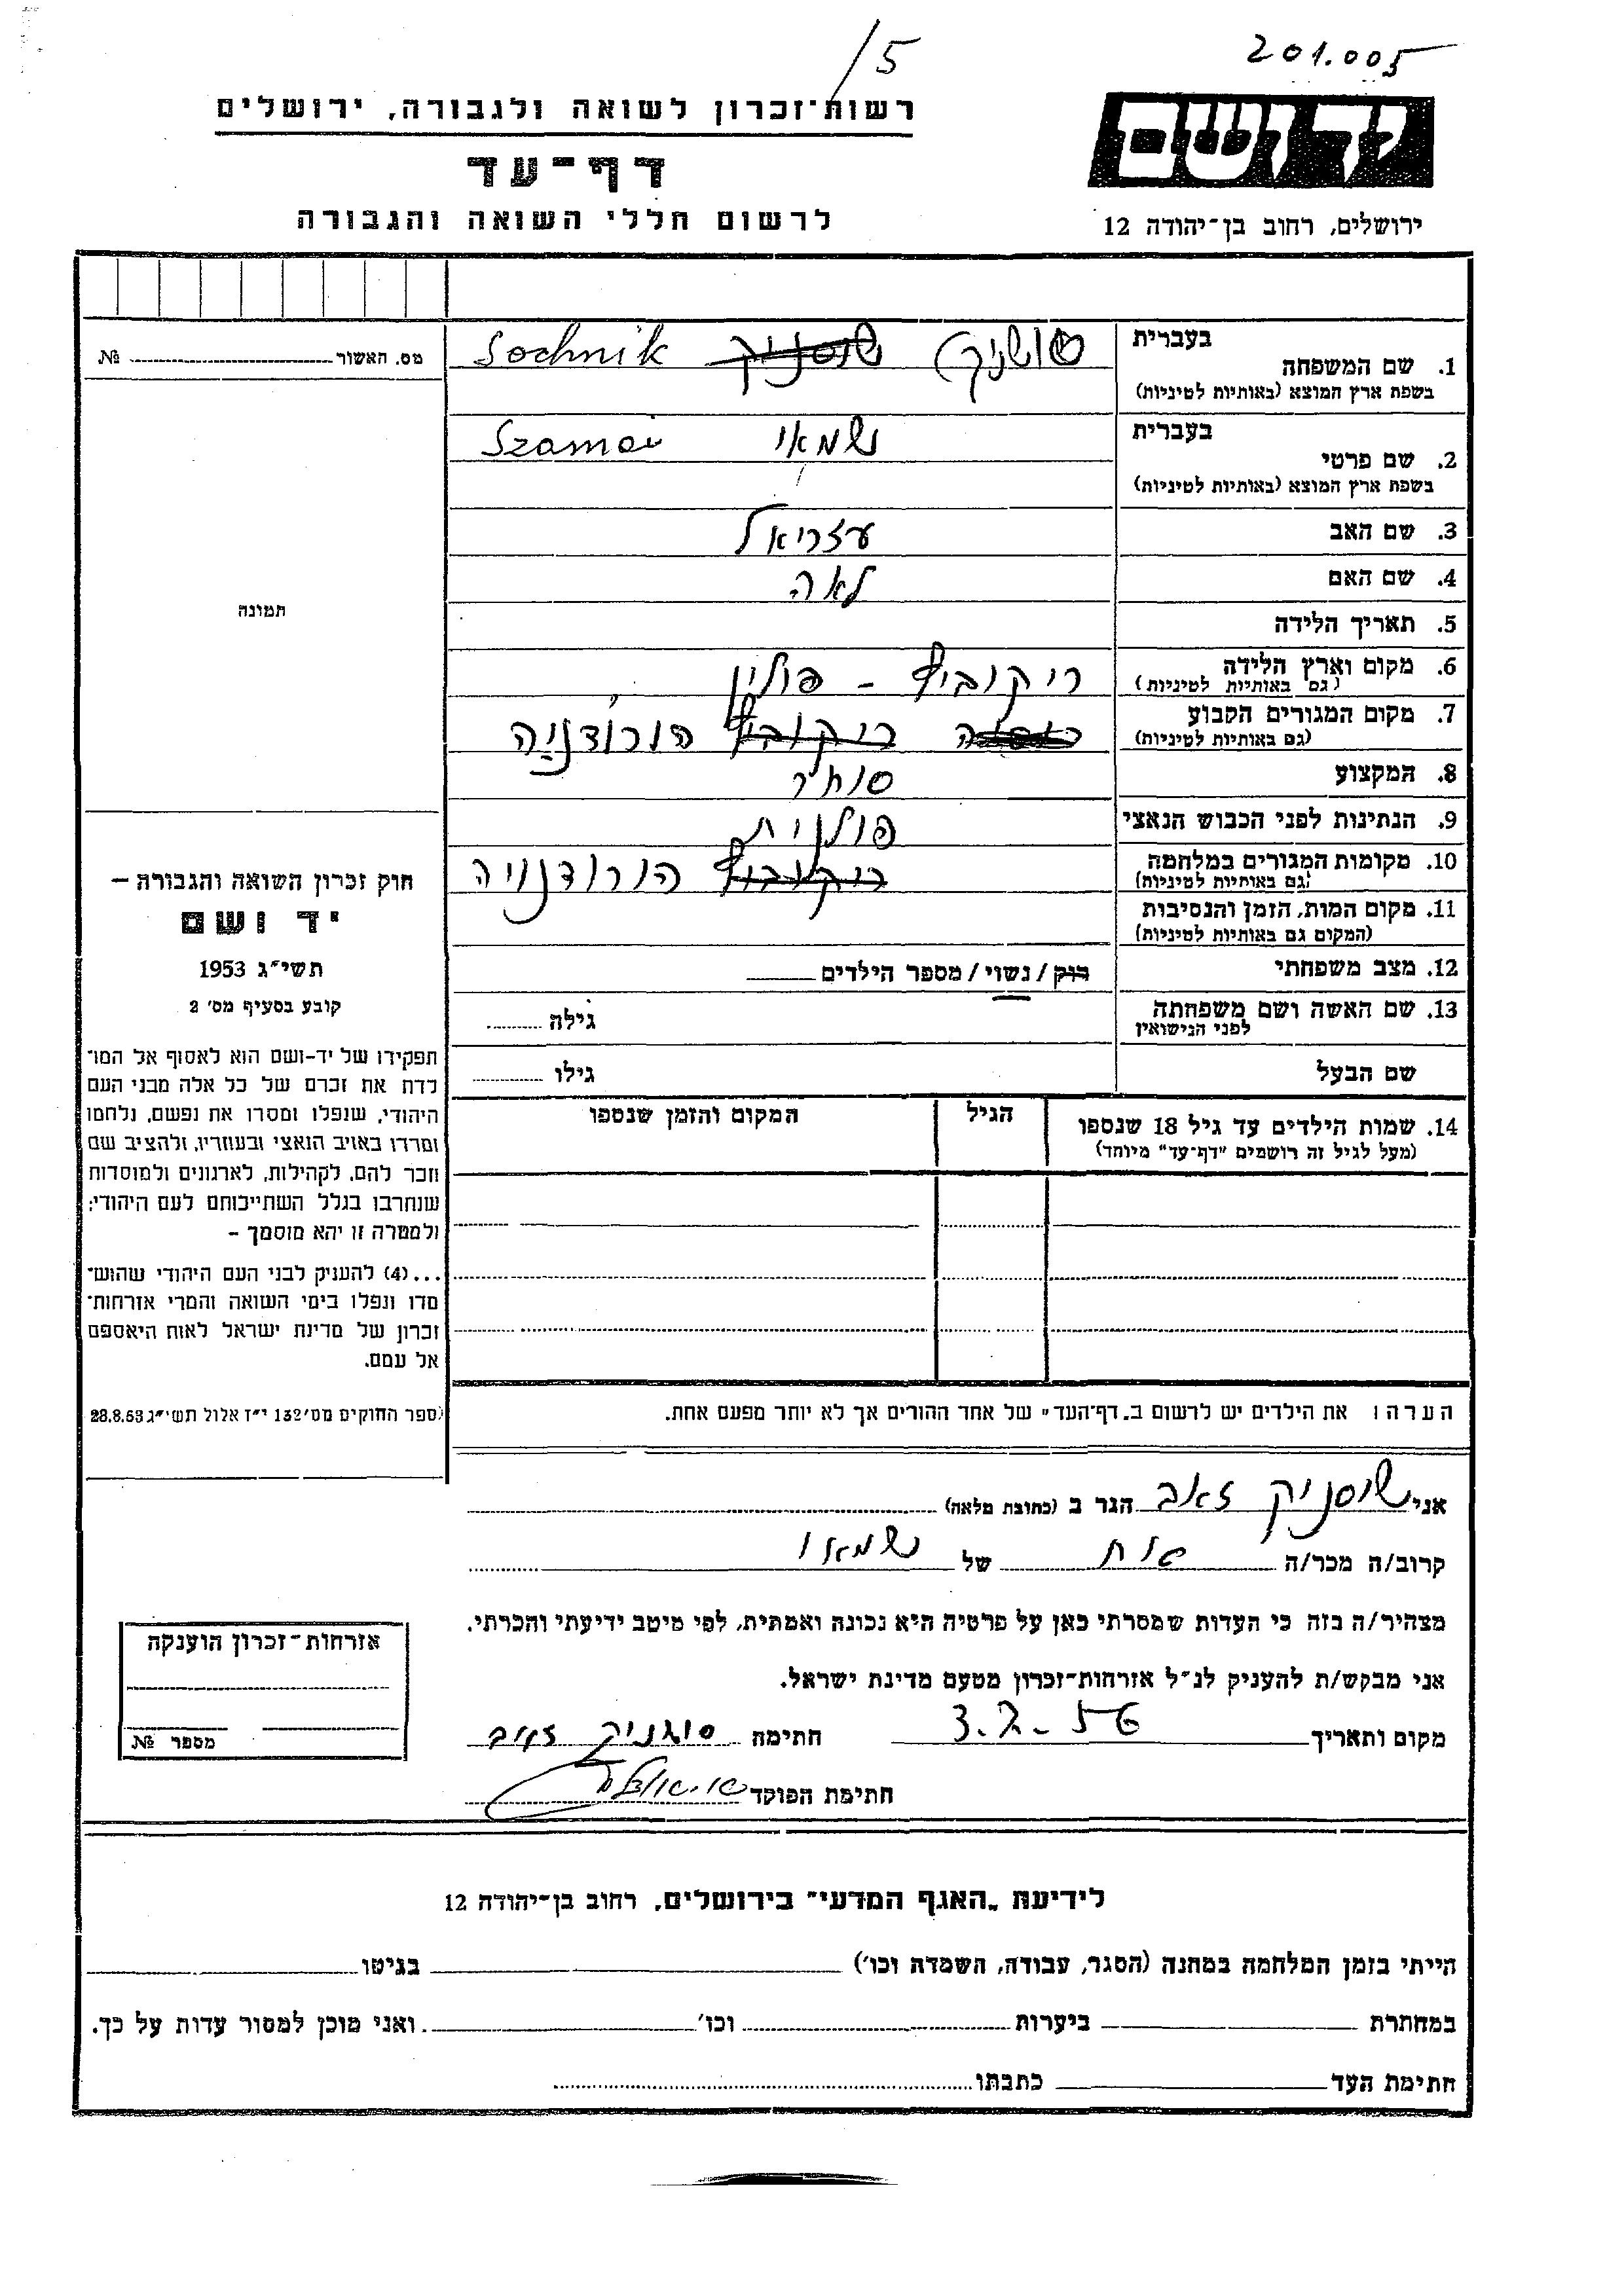 /5
201.005
רשות־זכרון לשואה ולגבורה, ירושלים
יד ושם
דף־עד
לרשום חללי השואה והגבורה
ירושלים, רחוב בן־יהודה 12
בעברית
1. שם המשפחה
בשפת ארץ המוצא (באותיות לטיניות)
סושניק Sochnik
בעברית
2. שם פרטי
בשפת ארץ המוצא (באותיות לטיניות)
שמאי Szamai
3. שם האב עזריאל
4. שם האם לאה
5. תאריך הלידה
6. מקום וארץ הלידה
(גם באותיות לטיניות)
ריקוביץ - פולין
7. מקום המגורים הקבוע
(גם באותיות לטיניות)
הורודניה
8. המקצוע סוחר
9. הנתינות לפני הכבוש הנאצי פולנית
10. מקומות המגורים במלחמה
(גם באותיות לטיניות)
הורודנויה
11. מקום המות, הזמן והנסיבות
(המקום גם באותיות לטיניות)
12. מצב משפחתי רוק / נשוי / מספר הילדים
13. שם האשה ושם משפחתה
לפני הנישואין
גילה
שם הבעל גילו
14. שמות הילדים עד גיל 18 שנספו
(מעל לגיל זה רושמים "דף־עד" מיוחד)
הגיל
המקום והזמן שנספו
הערה: את הילדים יש לרשום ב„דף־העד" של אחד ההורים אך לא יותר מפעם אחת.
מס. האשור №
תמונה
חוק זכרון השואה והגבורה –
יד ושם
תשי"ג 1953
קובע בסעיף מס' 2
תפקידו של יד-ושם הוא לאסוף אל המו־
לדת את זכרם של כל אלה מבני העם
היהודי, שנפלו ומסרו את נפשם, נלחמו
ומרדו באויב הנאצי ובעוזריו, ולהציב שם
וזכר להם, לקהילות, לארגונים ולמוסדות
שנחרבו בגלל השתייכותם לעם היהודי;
ולמטרה זו יהא מוסמך –
...(4) להעניק לבני העם היהודי שהוש־
מדו ונפלו בימי השואה והמרי אזרחות־
זכרון של מדינת ישראל לאות היאספם
אל עמם.
(ספר החוקים מס' 132 י"ז אלול תשי"ג 28.8.53
אני שוסניק זאב הגר ב (כתובת מלאה)
קרוב/ה מכר/ה אח של שמאי
מצהיר/ה בזה כי העדות שמסרתי כאן על פרטיה היא נכונה ואמתית, לפי מיטב ידיעתי והכרתי.
אני מבקש/ת להעניק לנ"ל אזרחות־זכרון מטעם מדינת ישראל.
מקום ותאריך 3.7.56 חתימה סושניק זאב
חתימת הפוקד
אזרחות־זכרון הוענקה
מספר №
לידיעת „האגף המדעי" בירושלים, רחוב בן־יהודה 12
הייתי בזמן המלחמה במחנה (הסגר, עבודה, השמדה וכו') בגיטו
במחתרת ביערות וכו' ואני מוכן למסור עדות על כך.
חתימת העד כתבתו